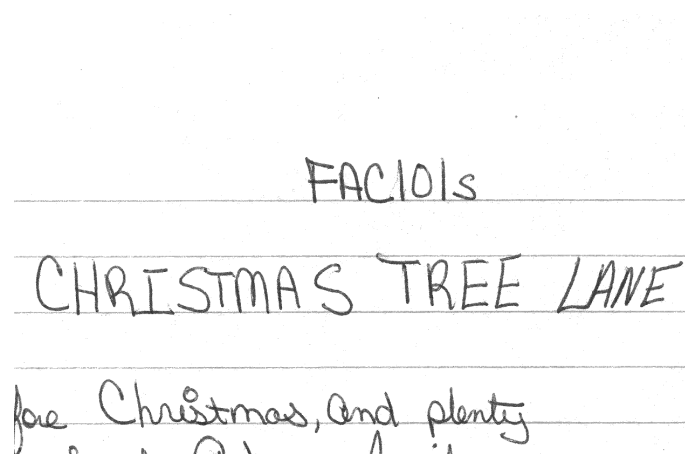 FAC101s
CHRISTMAS TREE LANE
fore Christmas, and plenty